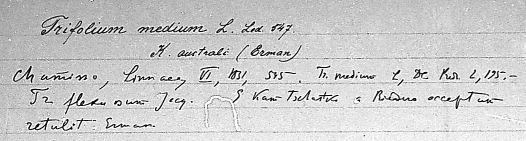 Trifolium medium L. Led. 547.
K. australi (Erman)
Chamisso, Linnaea, VI, 1831, 545. Tr. medium L, DC. Prdr. 2, 175.-
Tr flexuosum Jacq. E Kamtschatka a Redno acceptum
retulit Erman.